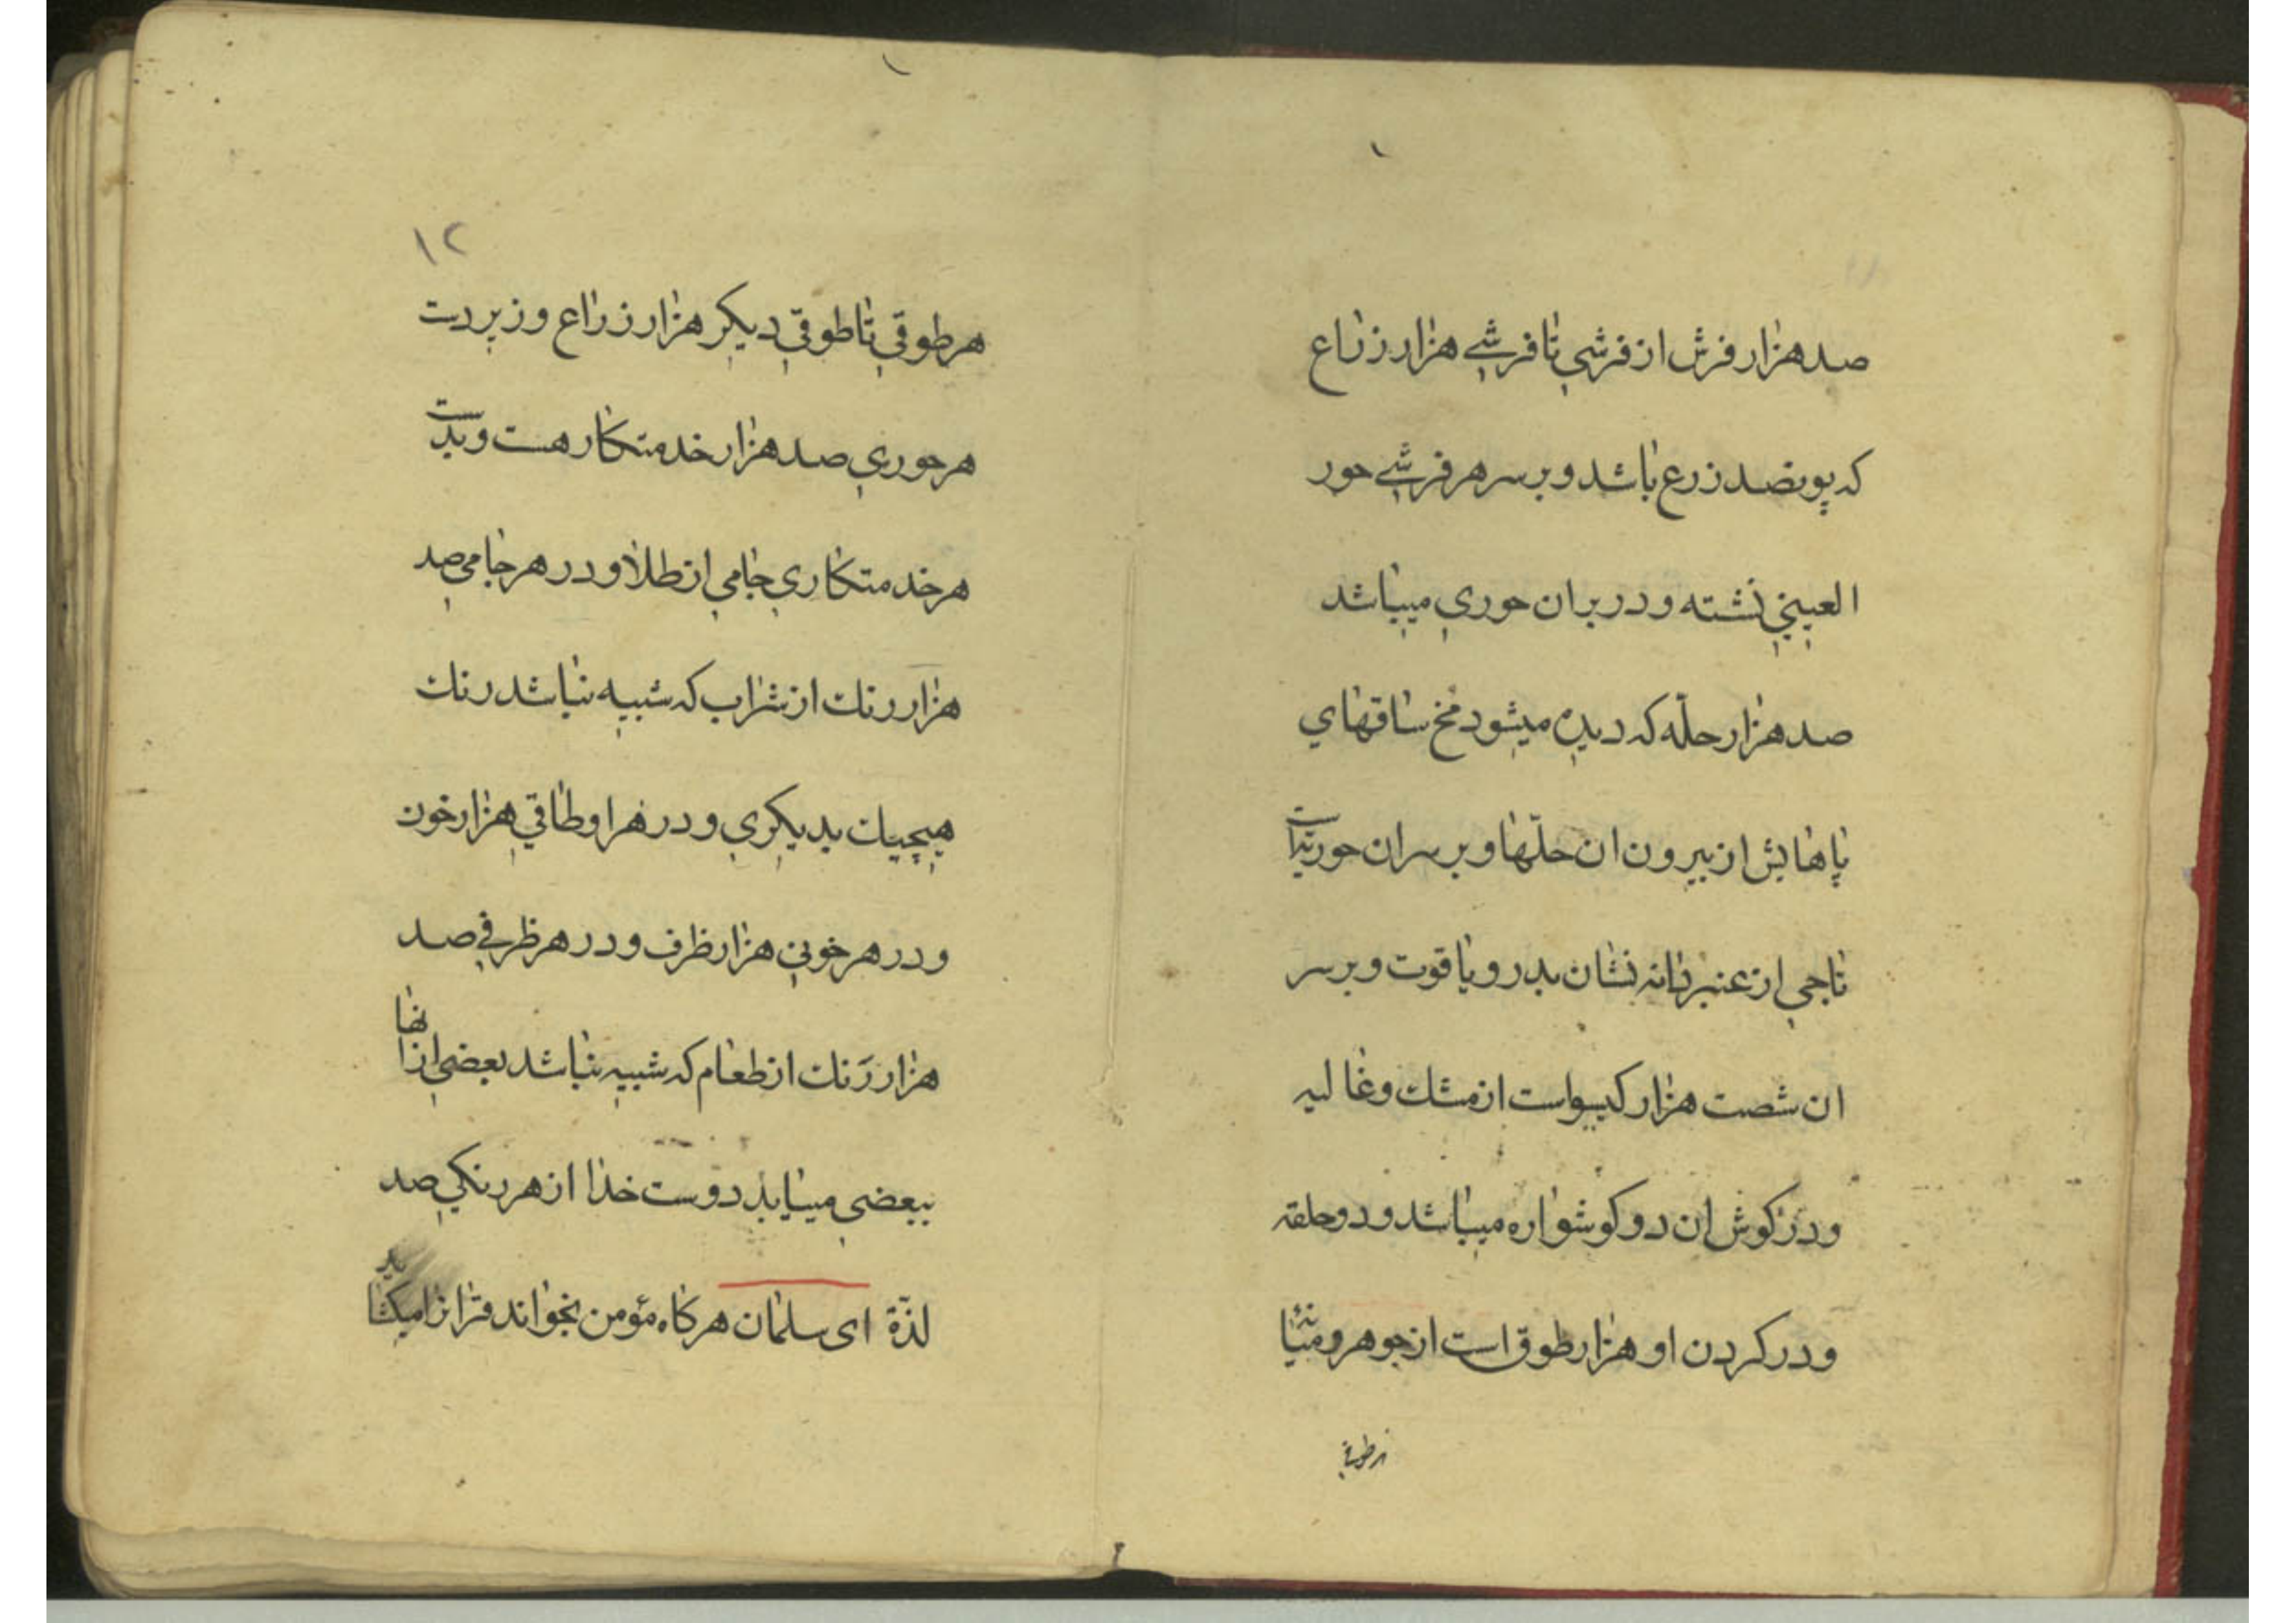 صد هزار فرش از فرشي تا فرشي هزار زراع
که پونصد زرع باشد و بر سر هر فرشي حور
العيني نشته و در بر ان حوري ميباشد
صد هزار حلّه که ديده ميشود مخ ساقهاي
پاهايش از بيرون ان حلّها و بر سر ان حوريّه است
تاجي از عنبر دانه نشان بدر و ياقوت و بر سر
ان شصت هزار کيسو است از مشك و غاليه
و در کوش ان دو کوشواره ميباشد و دو حلقه
و در کردن او هزار طوق است از جوهر و ميانه
هر طوقي
۱۲
هر طوقي تا طوقي ديکر هزار زراع و زير دت
هر حوري صد هزار خدمتکار هست و بدست
هر خدمتکاري جامي از طلا و در هر جامي صد
هزار رنك از شراب که شبيه نباشد رنك
هيچيك بديکري و در هر اوطاقي هزار خون
و در هر خوني هزار ظرف و در هر ظرفي صد
هزار رنك از طعام که شبيه نباشد بعضي از انها
ببعضي ميابد دوست خدا از هر رنکي صد
لذّة اى سلمان هر کاه مؤمن بخواند قران را ميکشايد